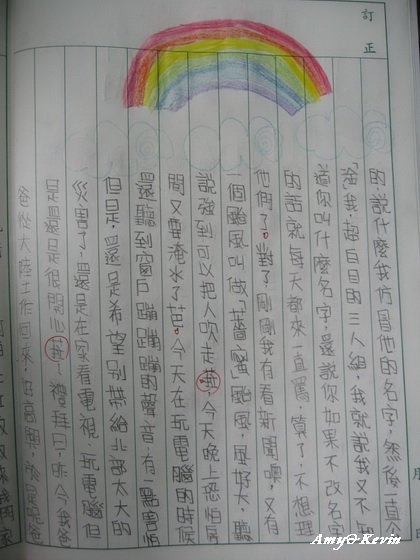 訂正
的說什麼我仿冒他的名字,一直今
「淦」我,超白目的三人組,我就說我又不知
道你叫什麼名字,還說你如果不改名字
的話就每天都來一直罵,算了,不想理
他們了。對了剛剛我有看新聞噢,又有
一個颱風叫做「薔蜜」颱風,風好大,聽
說強到可以把人吹走 今天晚上恐怕房
間又要淹水了芭。今天在玩電腦的時候
還聽到窗戶蹦蹦蹦的聲音,有一點害怕
但是,還是希望別帶給北部太大的
災害了,還是在家看電視、玩電腦但
是還是很開心 !禮拜日,昨今我爸
爸從大陸工作回來,
Amy&Kevin